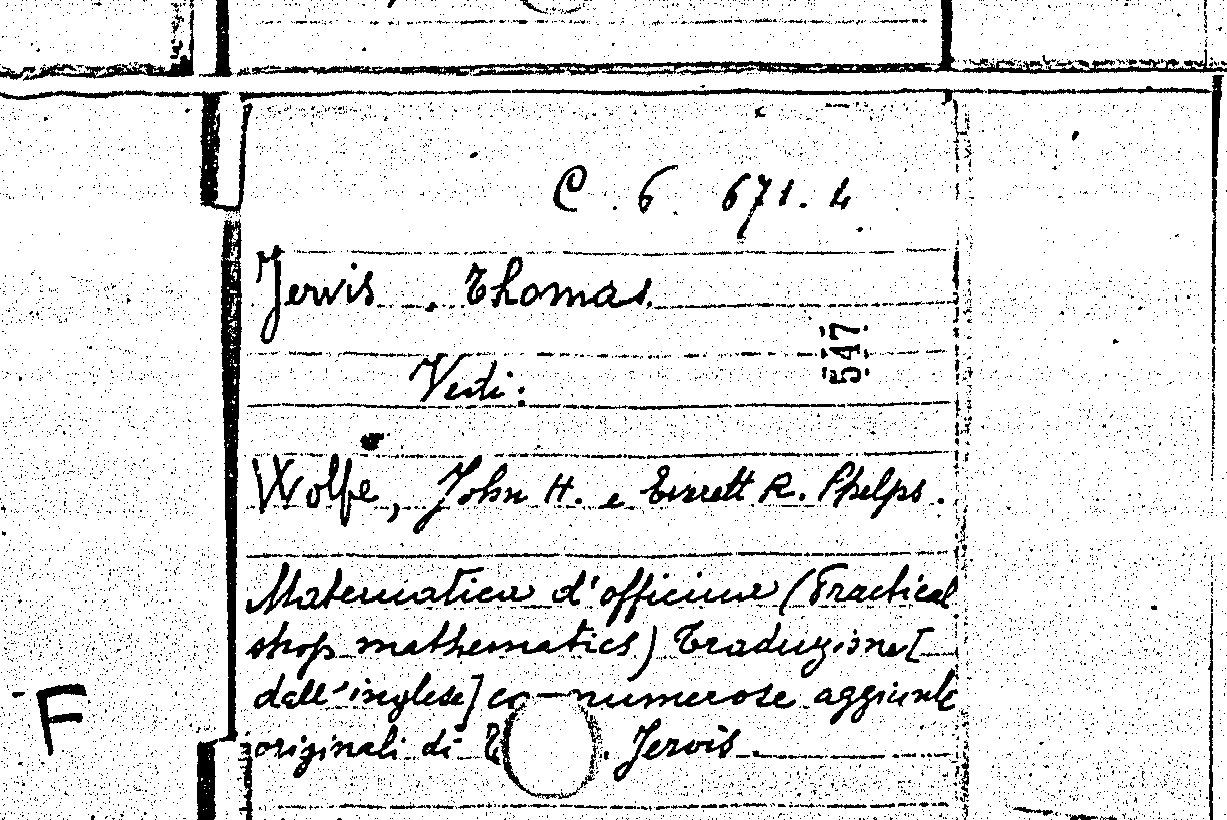 C. 6. 671. 4
Jervis. Thomas.
547
Vedi:
Wolfe, John H. e Everett R. Phelps.
Matematica d'officina (Practical
shop mathematics) Traduzione [
dall'inglese] co numerose aggiunte
originali di T . Jervis.
F